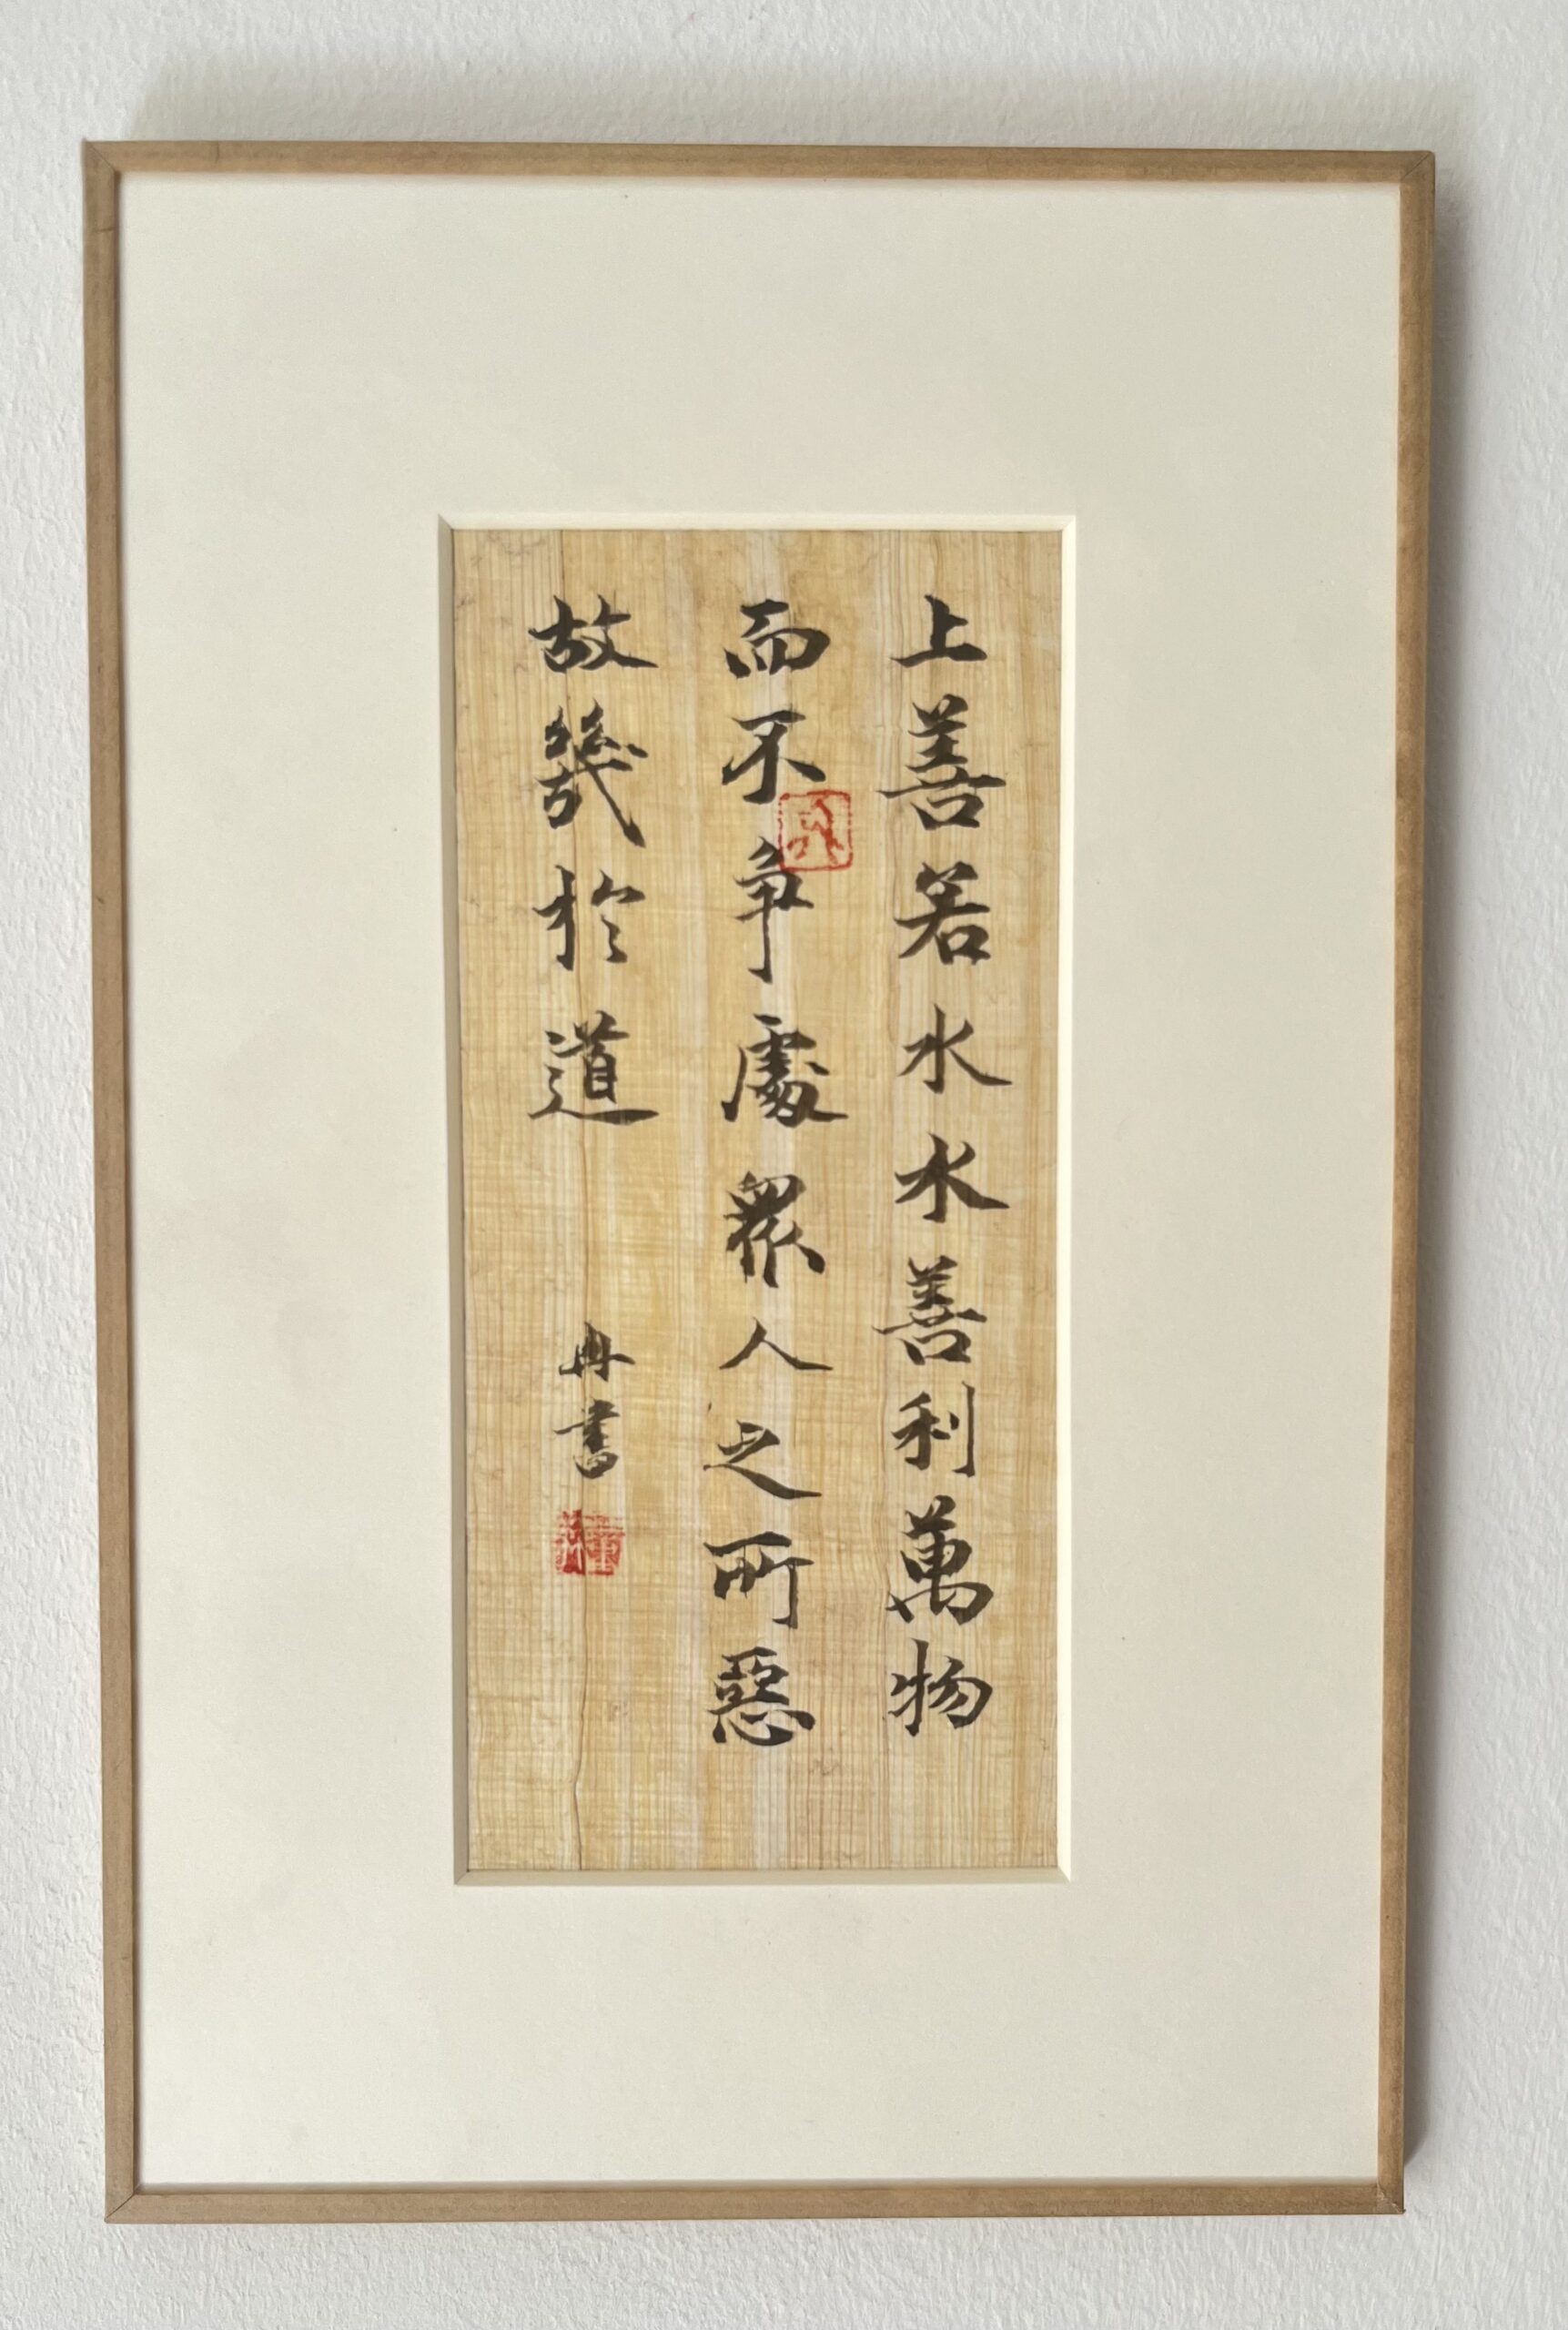 上善若水水善利萬物
而不爭處眾人之所惡
故幾於道
冉書